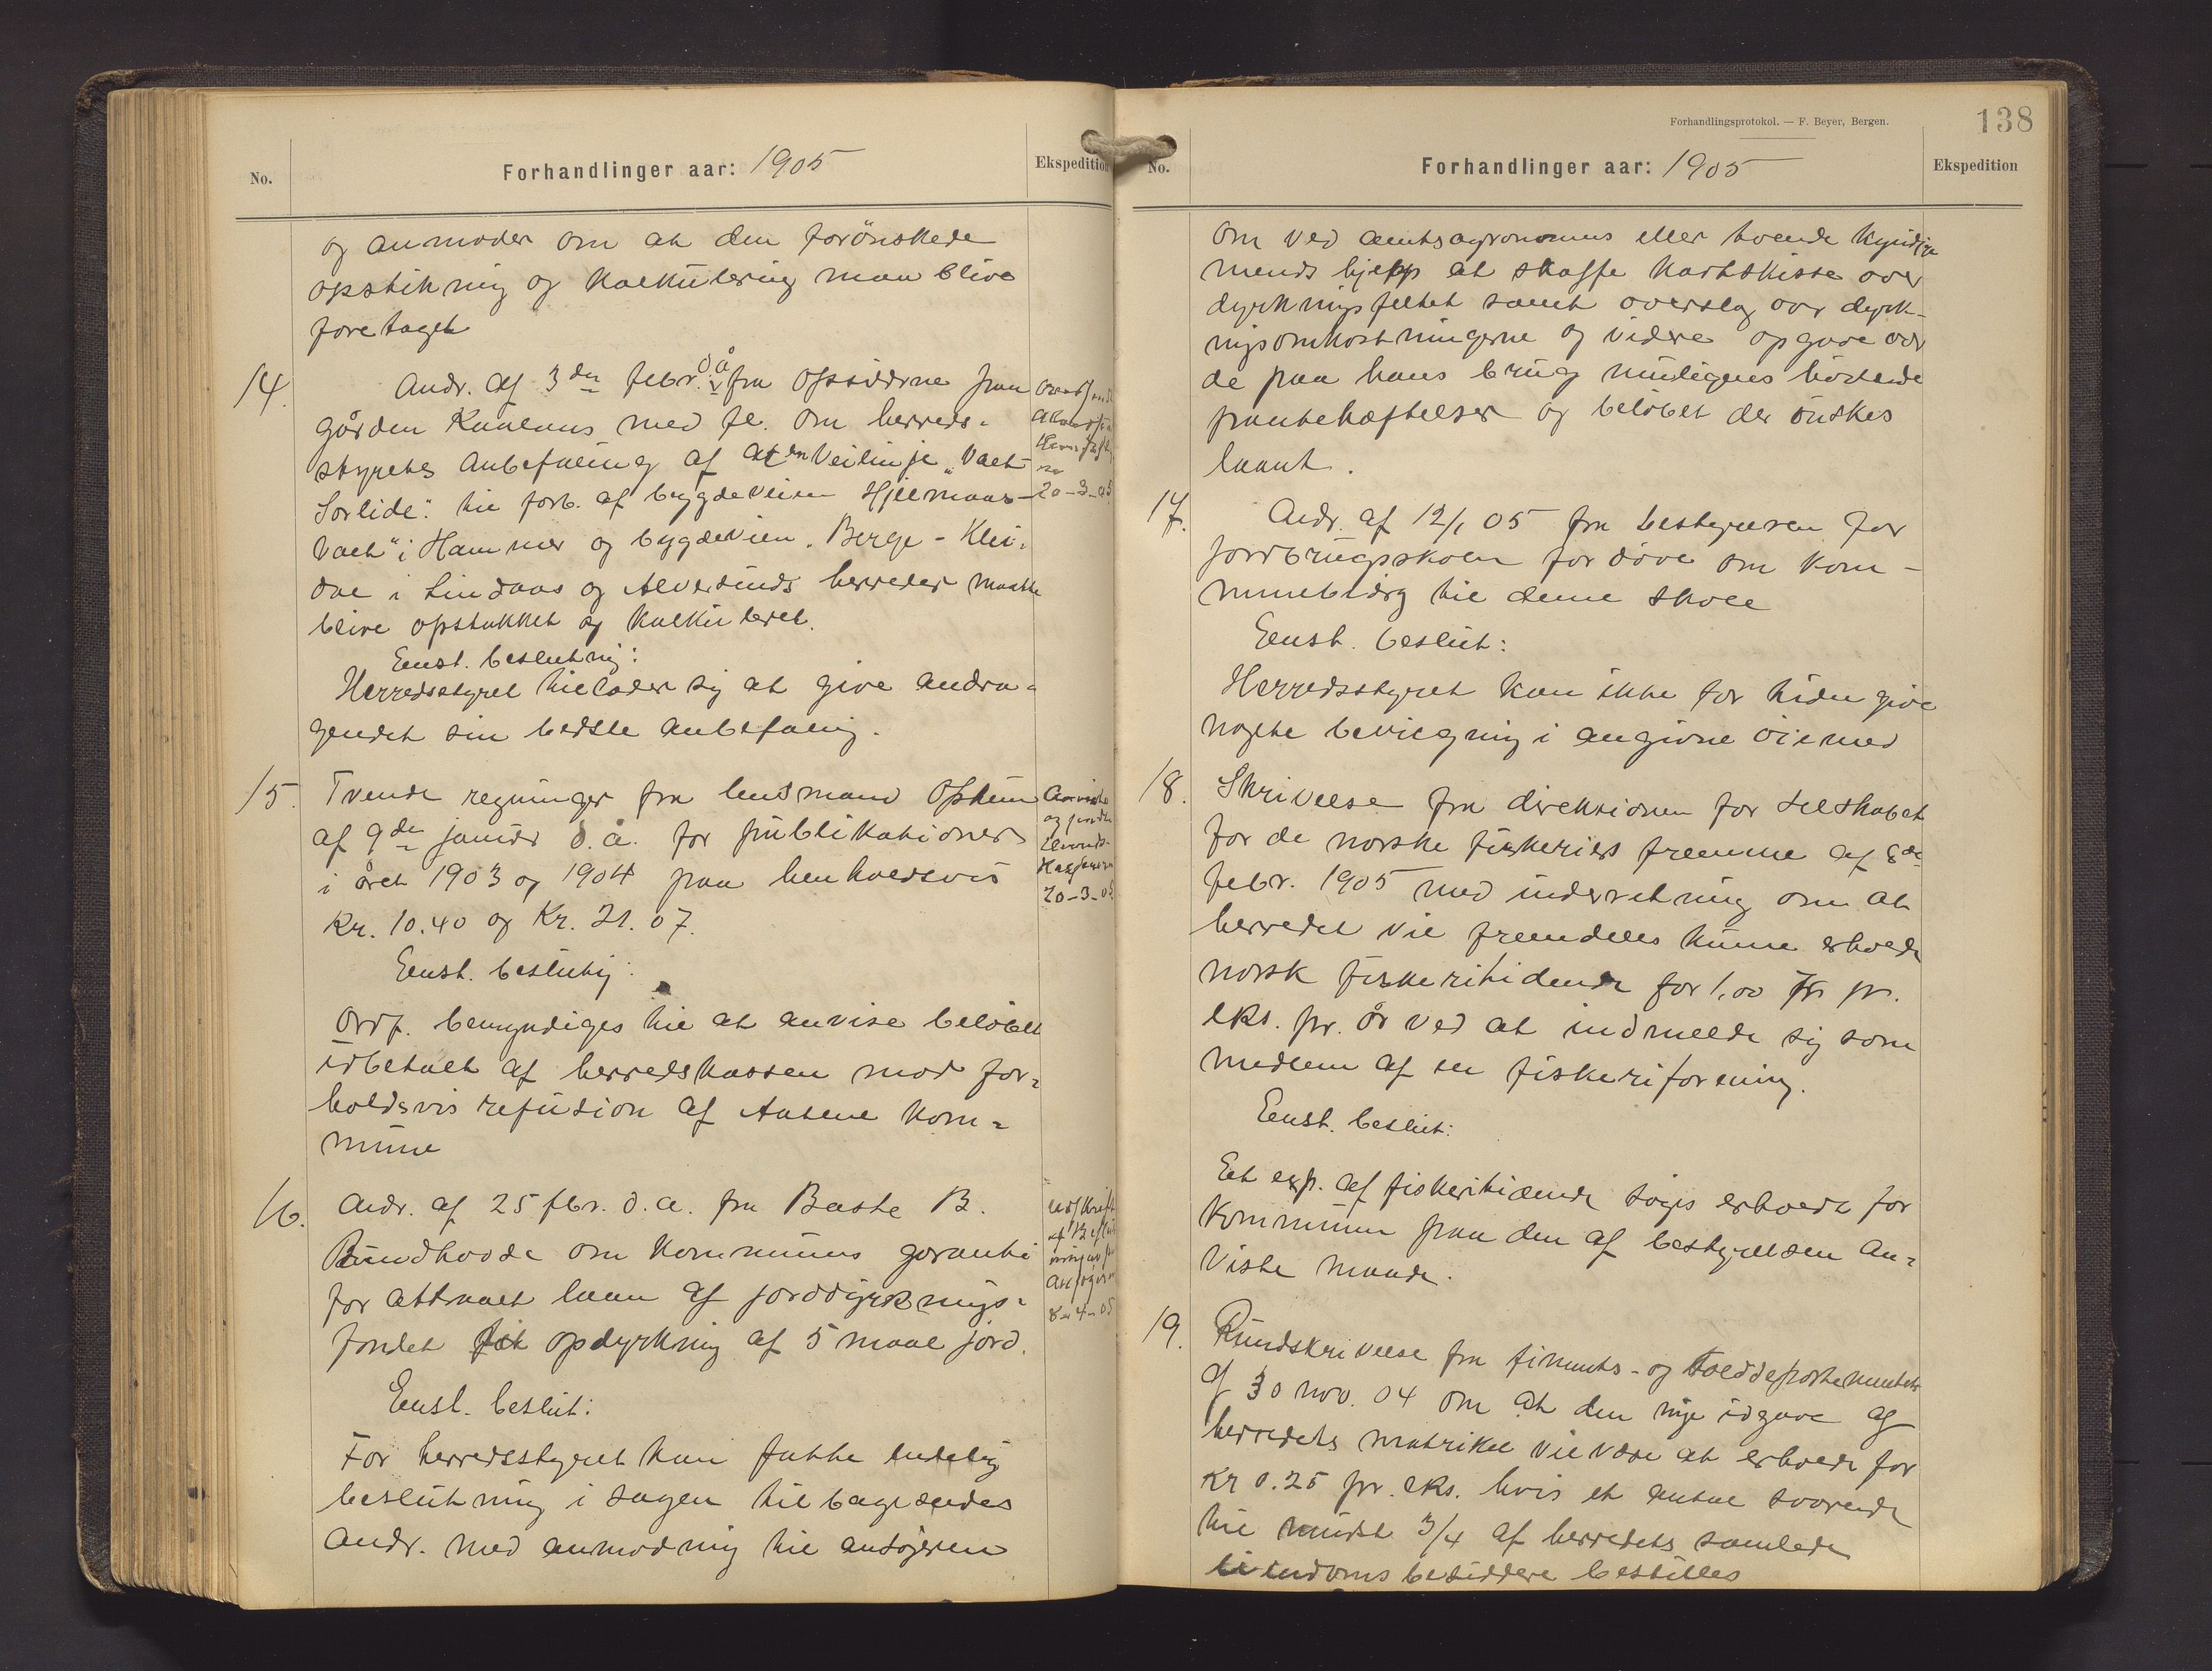 No.
Forhandlinger aar: 1905
Ekspedition
og anmoder om at den forönskede
opstikning og kalkulering maa blive
foretaget
14.
Andr. af 3den febr. d.å. fra opsidderne paa
gården med fl. om herreds-
styrets anbefaling af at en veilinje "Valt
Sorlide" til forb. af bygdeveien Hjelmaas-
i Hammer og bygdeveien Berge - Klei-
i Lindaas og Alversunds herreder maatte
blive opstukket og kalkuleret.
Eenst. beslutnig:
Herredsstyret tillader sig at give andra-
gendet sin bedste anbefaling.
20-3-05
15.
Tvende regninger fra lensmand Opheim
af 9de januar d.å. for publikationer
i året 1903 og 1904 paa henholdsvis
Kr. 10.40 og Kr. 21.07.
Eenst. beslutnig:
Ordf. bemyndiges til at anvise beløbet
udbetalt af herredskassen mod for-
holdsvis refusion af kom-
mune
Anvist
og
20-3-05
16.
Andr. af 25 fbr. d.a. fra Baste B.
Rundhovde om kommunens garanti
for attraaet laan af jorddyrknings-
fondet til opdyrkning af 5 maal jord.
Eenst. beslut:
Før herredsstyret kan fatte endelig
beslutning i sagen tilbagesendes
andr. med anmodning til ansøgeren
Udskrift
af Beslut
ningen
8-4-05
Forhandlingsprotokol. — F. Beyer, Bergen.
138
No.
Forhandlinger aar: 1905
Ekspedition
om ved amtsagronomens eller tvende kyndige
mends hjelp at skaffe kartskisse over
dyrkningsfeltet samt overslag over dyrk-
ningsomkostningerne og videre opgave over
de paa hans brug muligens hvilende
pantehæftelser og beløbet der ønskes
laant.
17.
Andr. af 12/1 05 fra bestyrelsen for
jordbrugsskolen for døve om kom-
munebidrag til denne skole
Eenst. beslut:
Herredsstyret kan ikke for tiden give
nogen bevilgning i angivne øiemed
18.
Skrivelse fra direktionen for selskabet
for de norske fiskeriers fremme af 8de
febr. 1905 med underretning om at
herredet vil fremdeles kunne erholde
norsk fiskeritidende for 1,00 Kr pr.
eks. pr. år ved at indmelde sig som
medlem af en fiskeriforening.
Eenst. beslut:
Et exp. af fiskeritidende søges erholdt for
kommunen paa den af bestyrelsen an-
viste maade.
19.
Rundskrivelse fra finants- og tolddepartementet
af 30 nov. 04 om at den nye udgave af
herredets matrikel vil være at erholde for
Kr 0.25 pr. eks. hvis et antal svarende
til mindst 3/4 af herredets samlede
eiendomsbesiddere bestilles